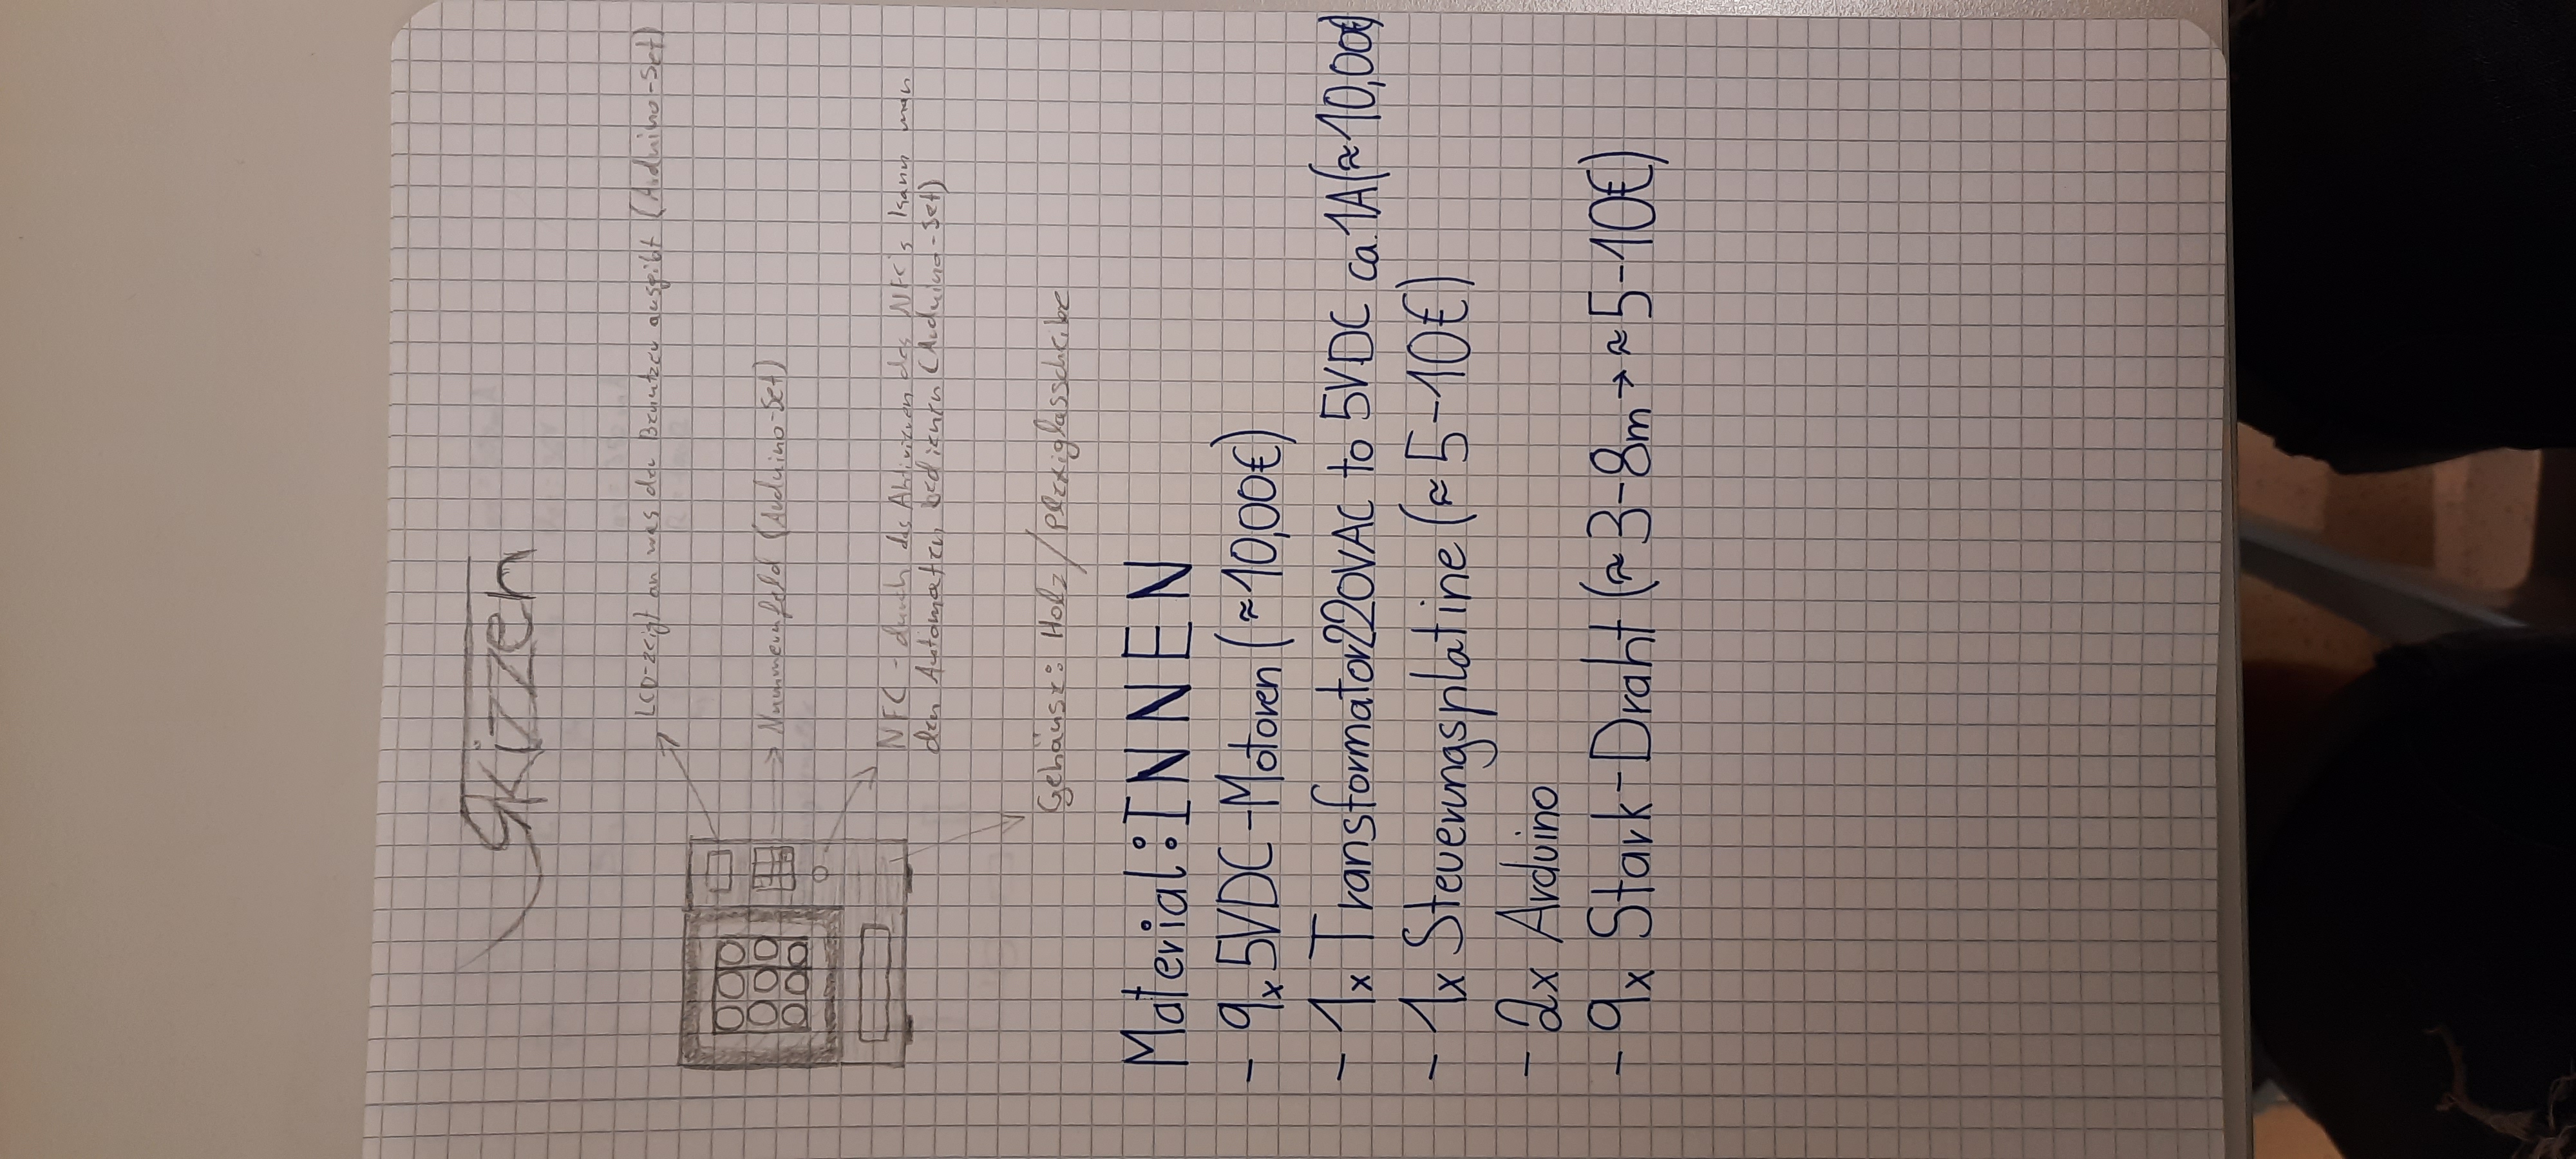 Skizzen
LCD-zeigt an was der Benutzer ausgibt (Arduino-Set)
Nummernfeld (Arduino-Set)
NFC - durch das Aktivieren des NFC's kann man
den Automaten bedienen (Arduino-Set)
Gehäuse: Holz/Plexiglasscheibe
Material: INNEN
- 9x 5VDC-Motoren (≈10,00€)
- 1x Transformator 220VAC to 5VDC ca. 1A (≈10,00€)
- 1x Steuerungsplatine (≈5-10€)
- 2x Arduino
- 9x Stark-Draht (≈3-8m → ≈5-10€)